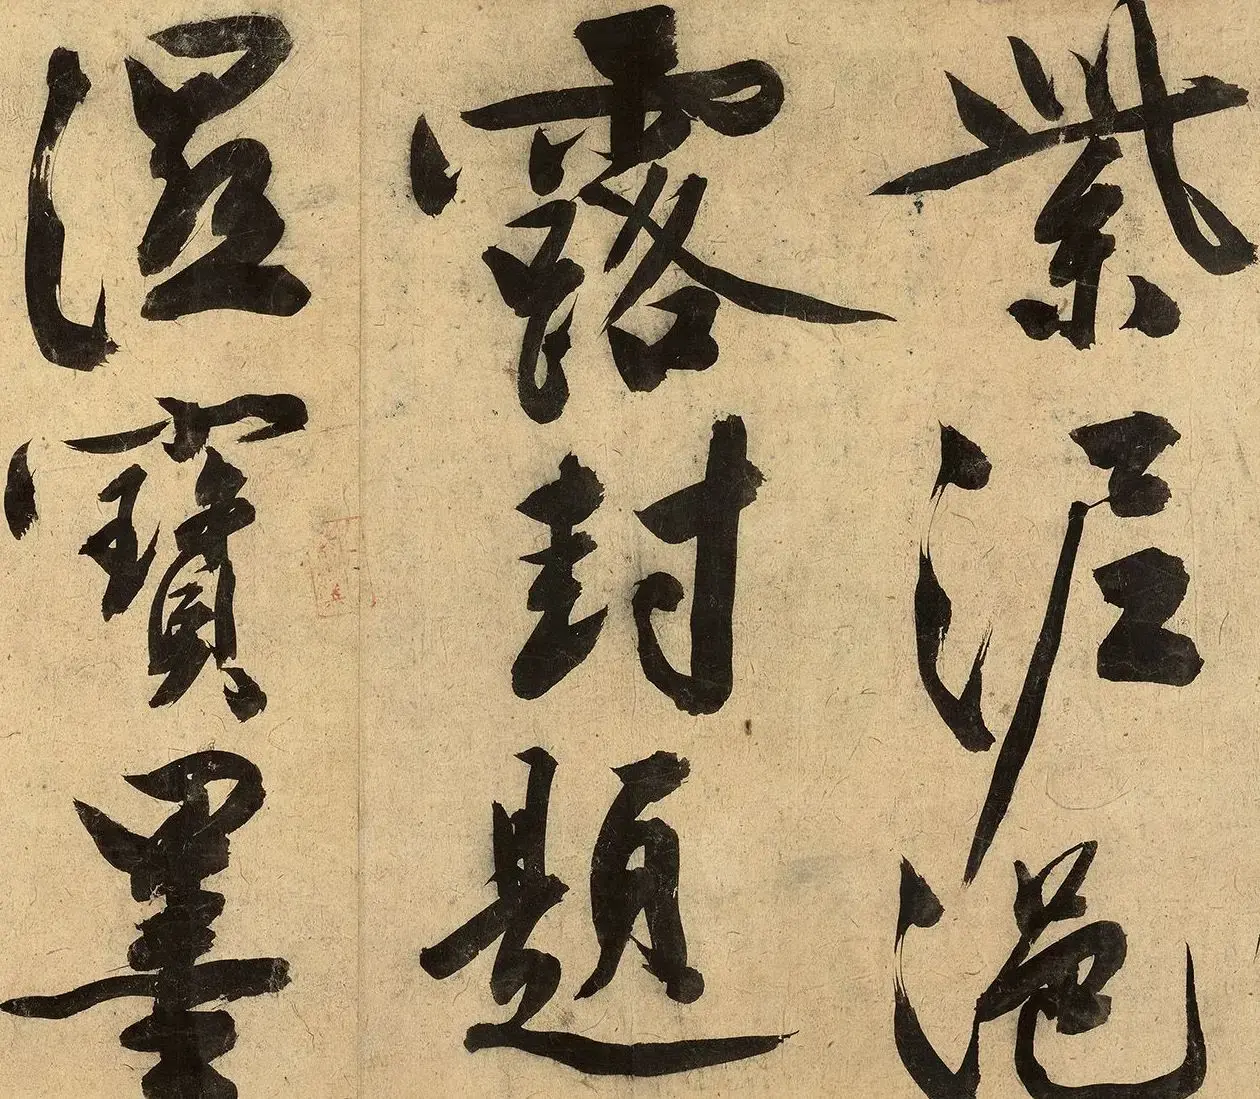 紫泥浥
露封題
湿寶墨